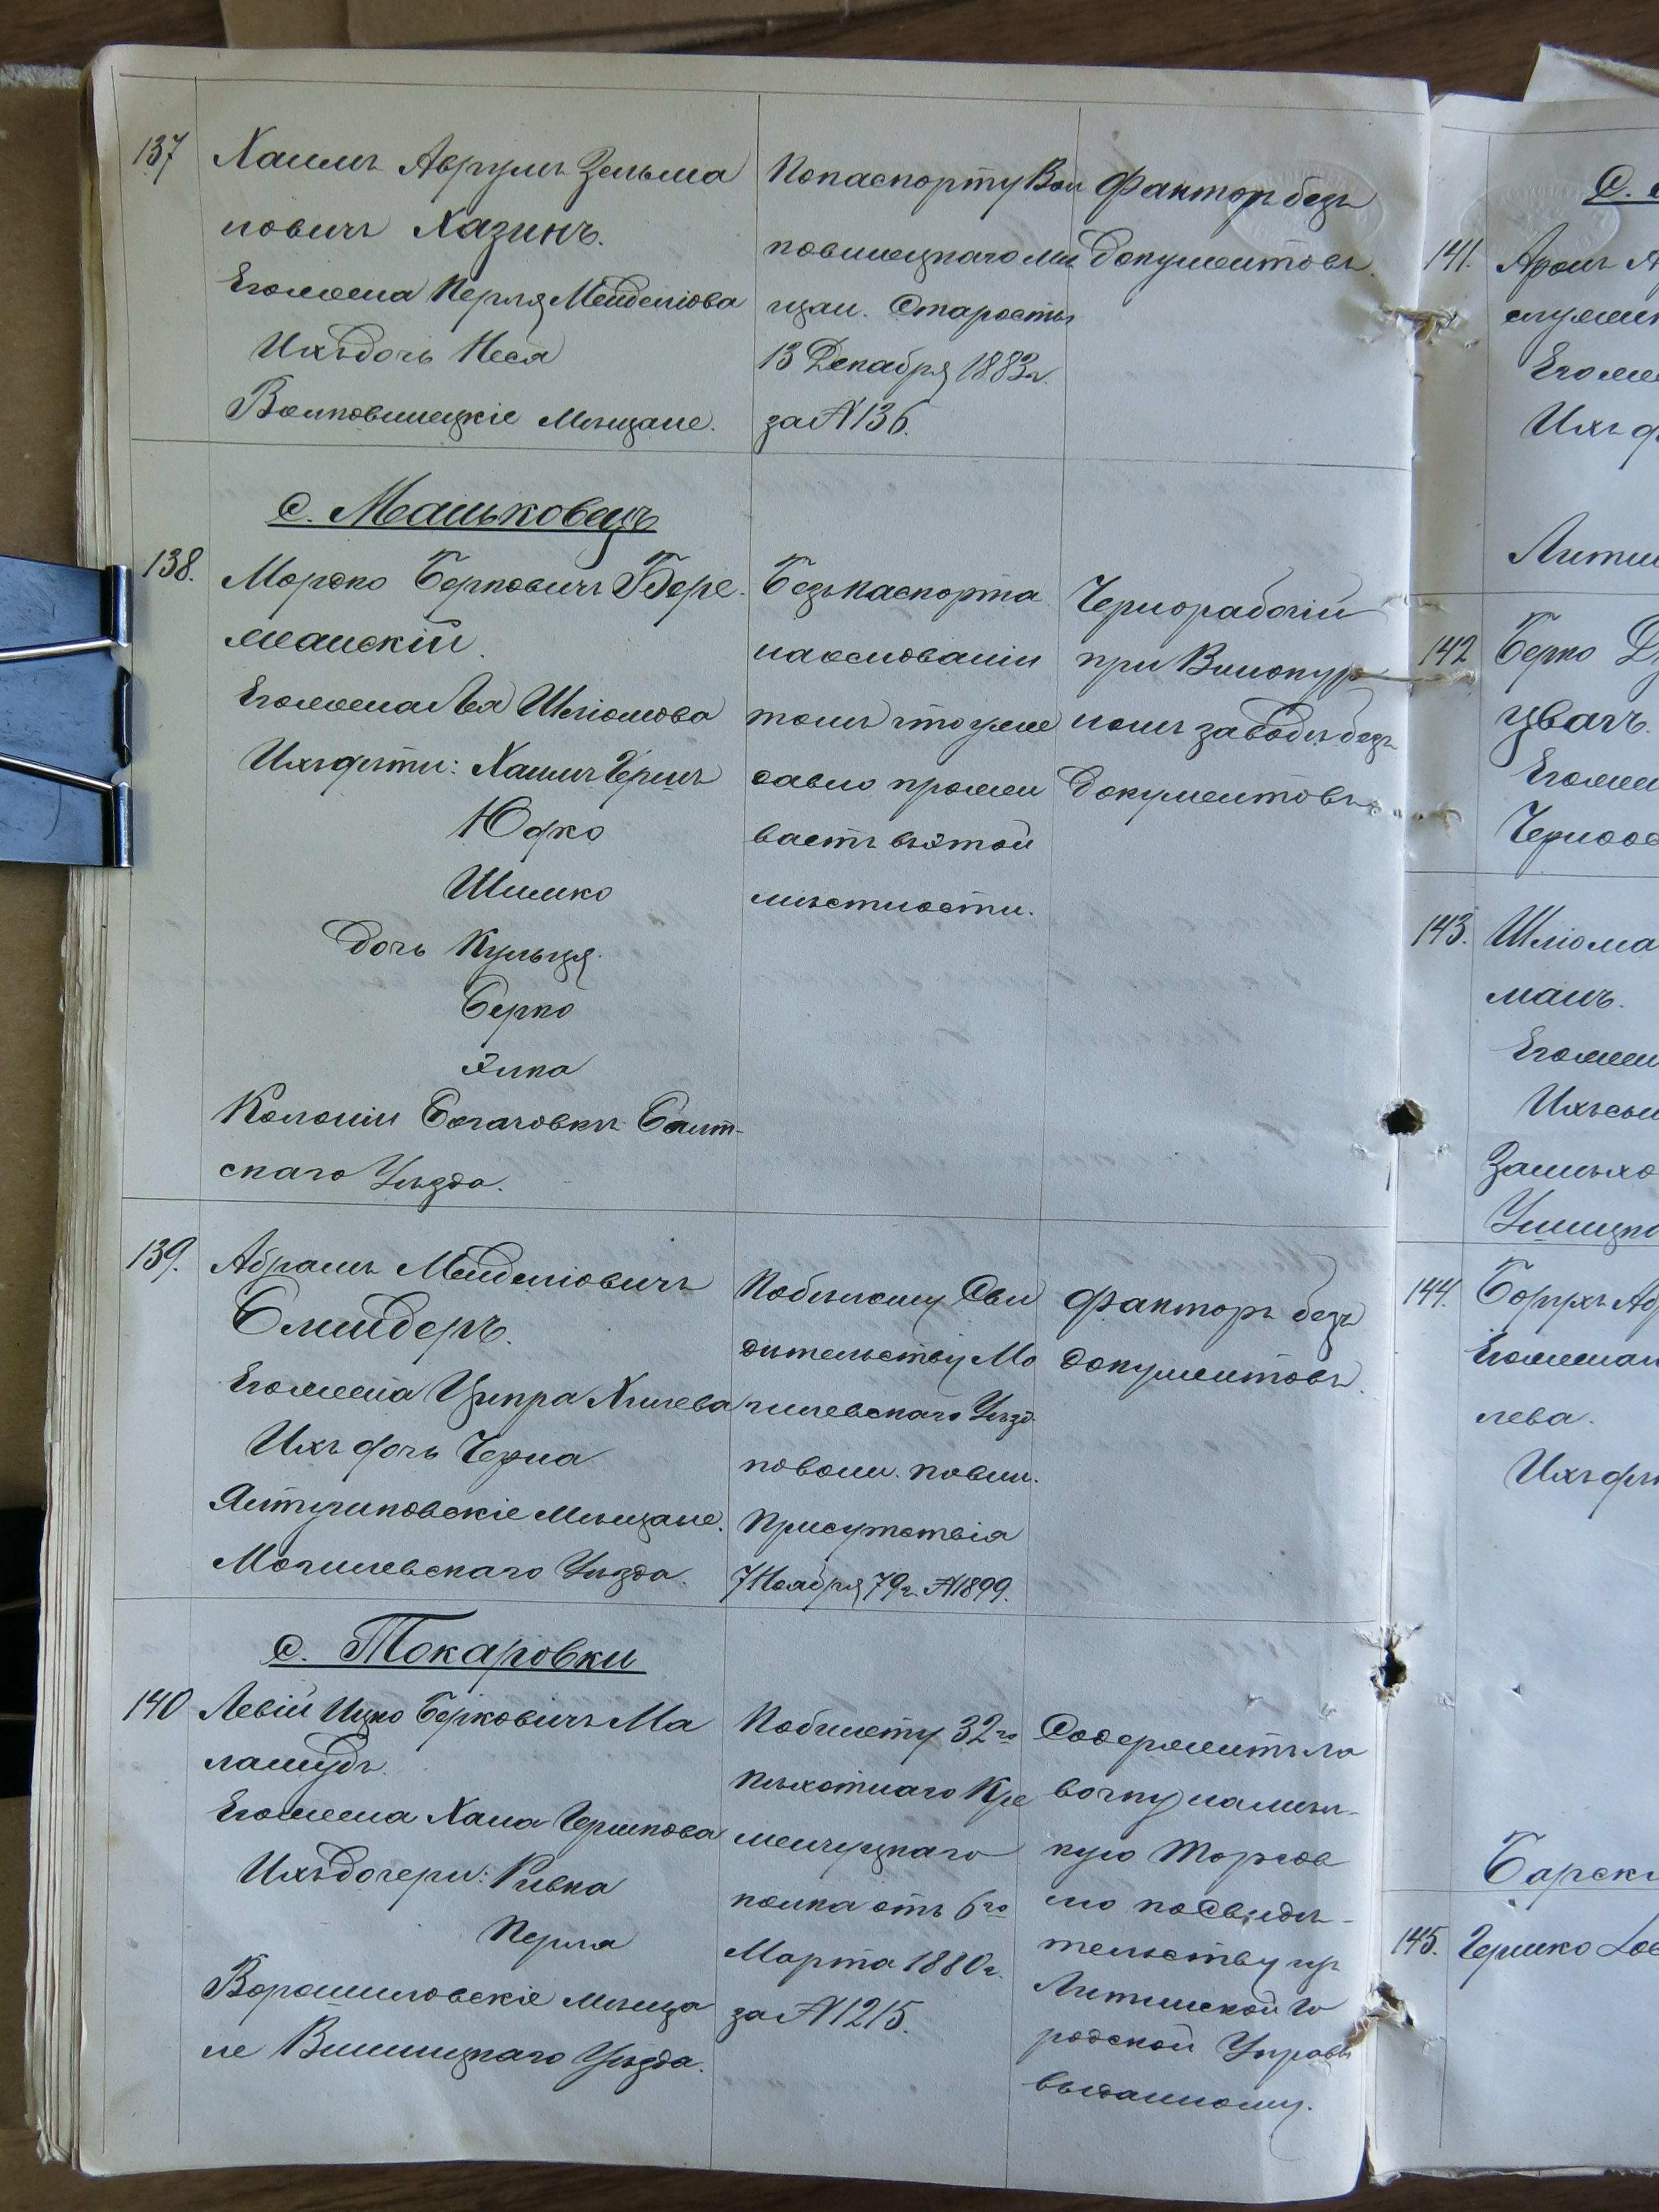 137
Хаимъ Аврумъ Зельма
новичъ Хазинъ.
Его жена Перля Мендельова
Ихъ дочь Неся
Волковинецкіе Мѣщане.
По паспорту Вол
ковинецкаго Мѣ
щан. Старосты
13 Декабря 1883 г.
за № 136.
Факторъ безъ
документовъ.
с. Маньковецъ
138.
Мордко Берковичъ Бере
жанскій.
Его жена Лея Шліомова
Ихъ дѣти: Хаимъ Герш
Юдко
Шимко
дочь Кульця
Берко
Элка
Колоніи Богачовки Балт-
скаго Уѣзда.
Безъ паспорта
на основаніи
томъ что уже
давно прожи
ваетъ въ этой
мѣстности.
Чернорабочій
при Винокур
номъ заводѣ безъ
документовъ.
139.
Абрамъ Менделіовичъ
Его жена Ципра Хилева
Ихъ дочь Черна
Ялтушковскіе Мѣщане.
Могилевскаго Уѣзда.
По бѣлому Сви
дительству Мо
гилевскаго Уѣзд.
по воин. повин.
Присутствія
7 Ноября 79 г. № 1899.
Факторъ безъ
документовъ.
с. Токаровки
140
Левій Ицко Берковичъ Ма
ламудъ.
Его жена Хана Гершкова
Ихъ дочери: Ривка
Перля
Ворошиловскіе мѣща
не Винницкаго Уѣзда.
По билету 32го
пѣхотнаго Кре
менчуцкаго
полка отъ 6го
Марта 1880 г.
за № 1215.
Содержитъ ла
вочку на мѣл-
кую торгов
лю по Свиде-
тельству изъ
Литинской Го
родской Управы
выданному.
С.
141.
Аронъ А
служит
Его же
Ихъ д
Литин
142
Берко
цвагъ.
Его жен
Черноос
143.
Шліома
манъ.
Его жен
Ихъ сын
Зинько
Ушицко
144.
Борухъ Аб
Его жена
лева.
Ихъ дѣт
Барскі
145.
Гершко